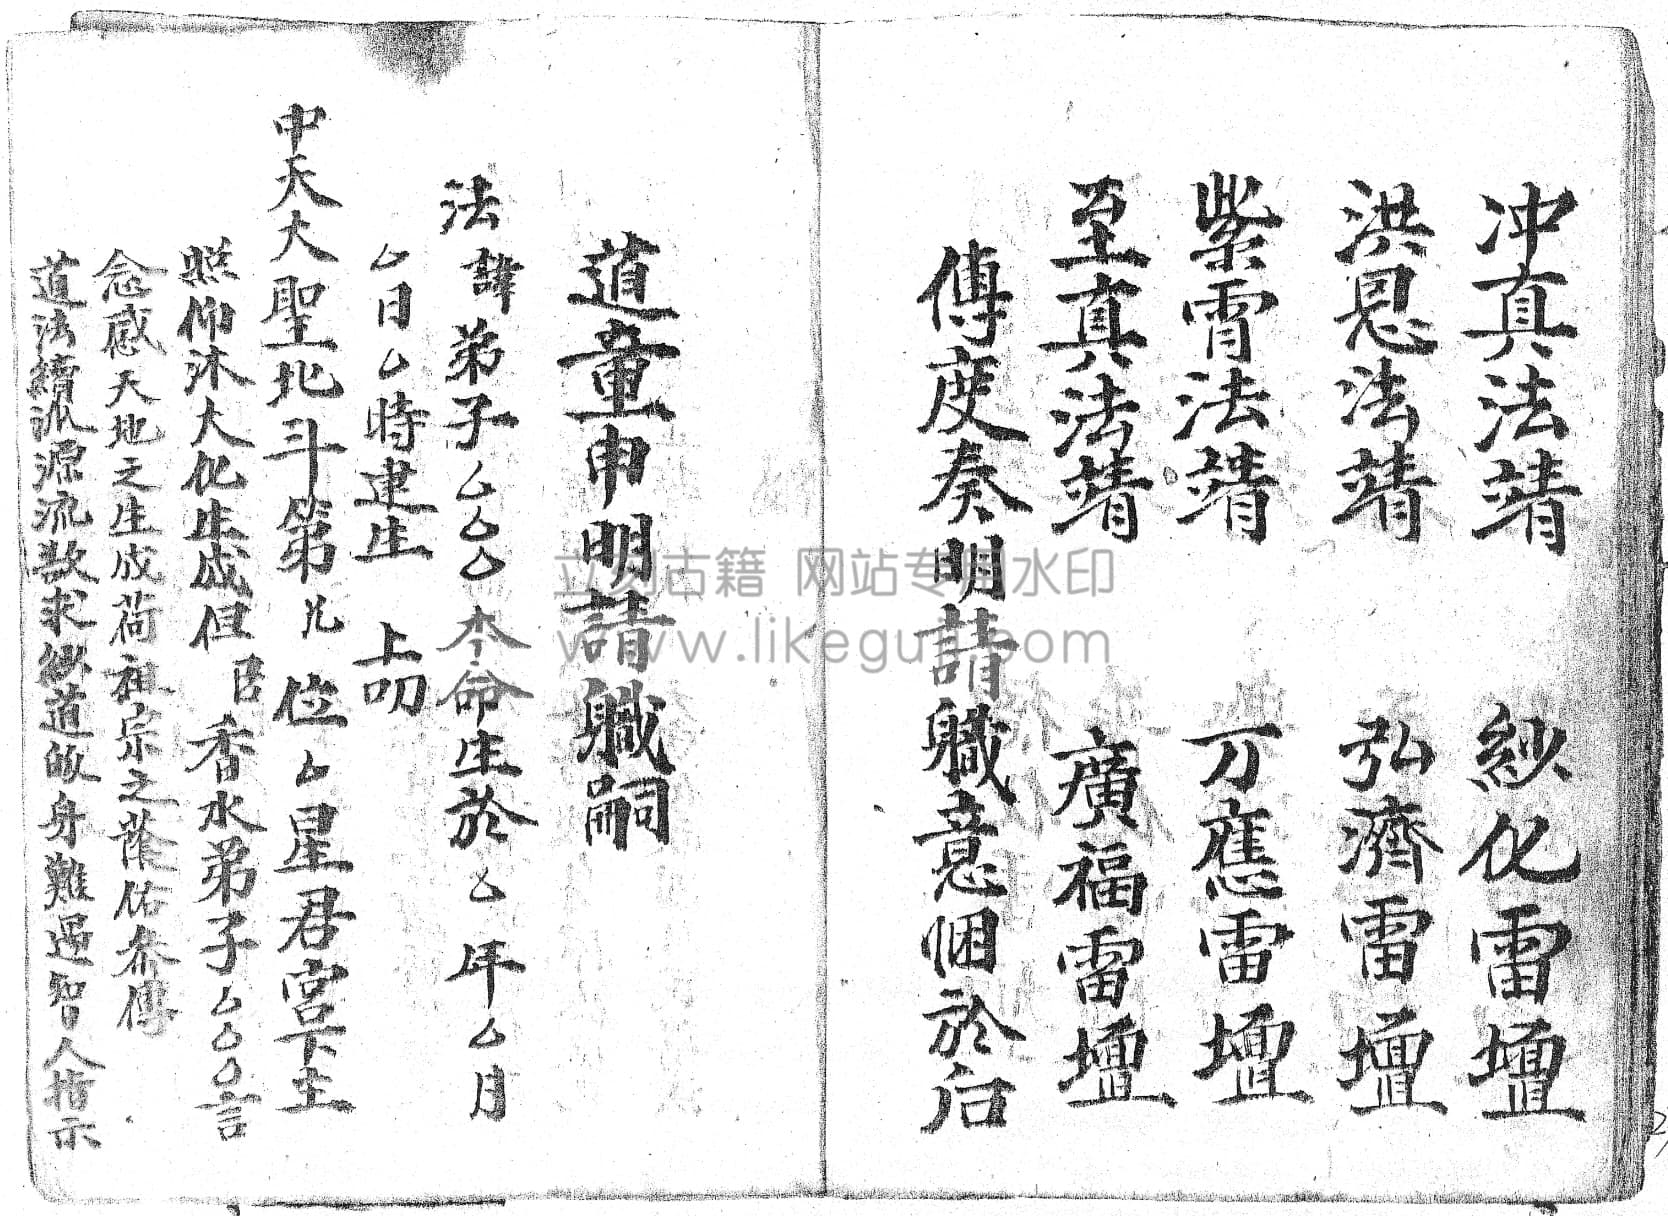 冲真法靖　紗化雷壇
洪恩法靖　弘濟雷壇
紫霄法靖　万應雷壇
至真法靖　廣福雷壇
傳度奏明請軄意悃於后
道童申明請軄嗣
法諱弟子厶厶厶本命生於厶年厶月
厶日厶時建生　上叨
中天大聖北斗第几位厶星君宮下主
照仰沐大化生成但臣香水弟子厶厶厶言
念感天地之生成荷祖宗之蔭佑叅傳
道法續派源流欲求紗道的身難遇智人指示
立刻古籍 网站专用水印
www.likeguji.com